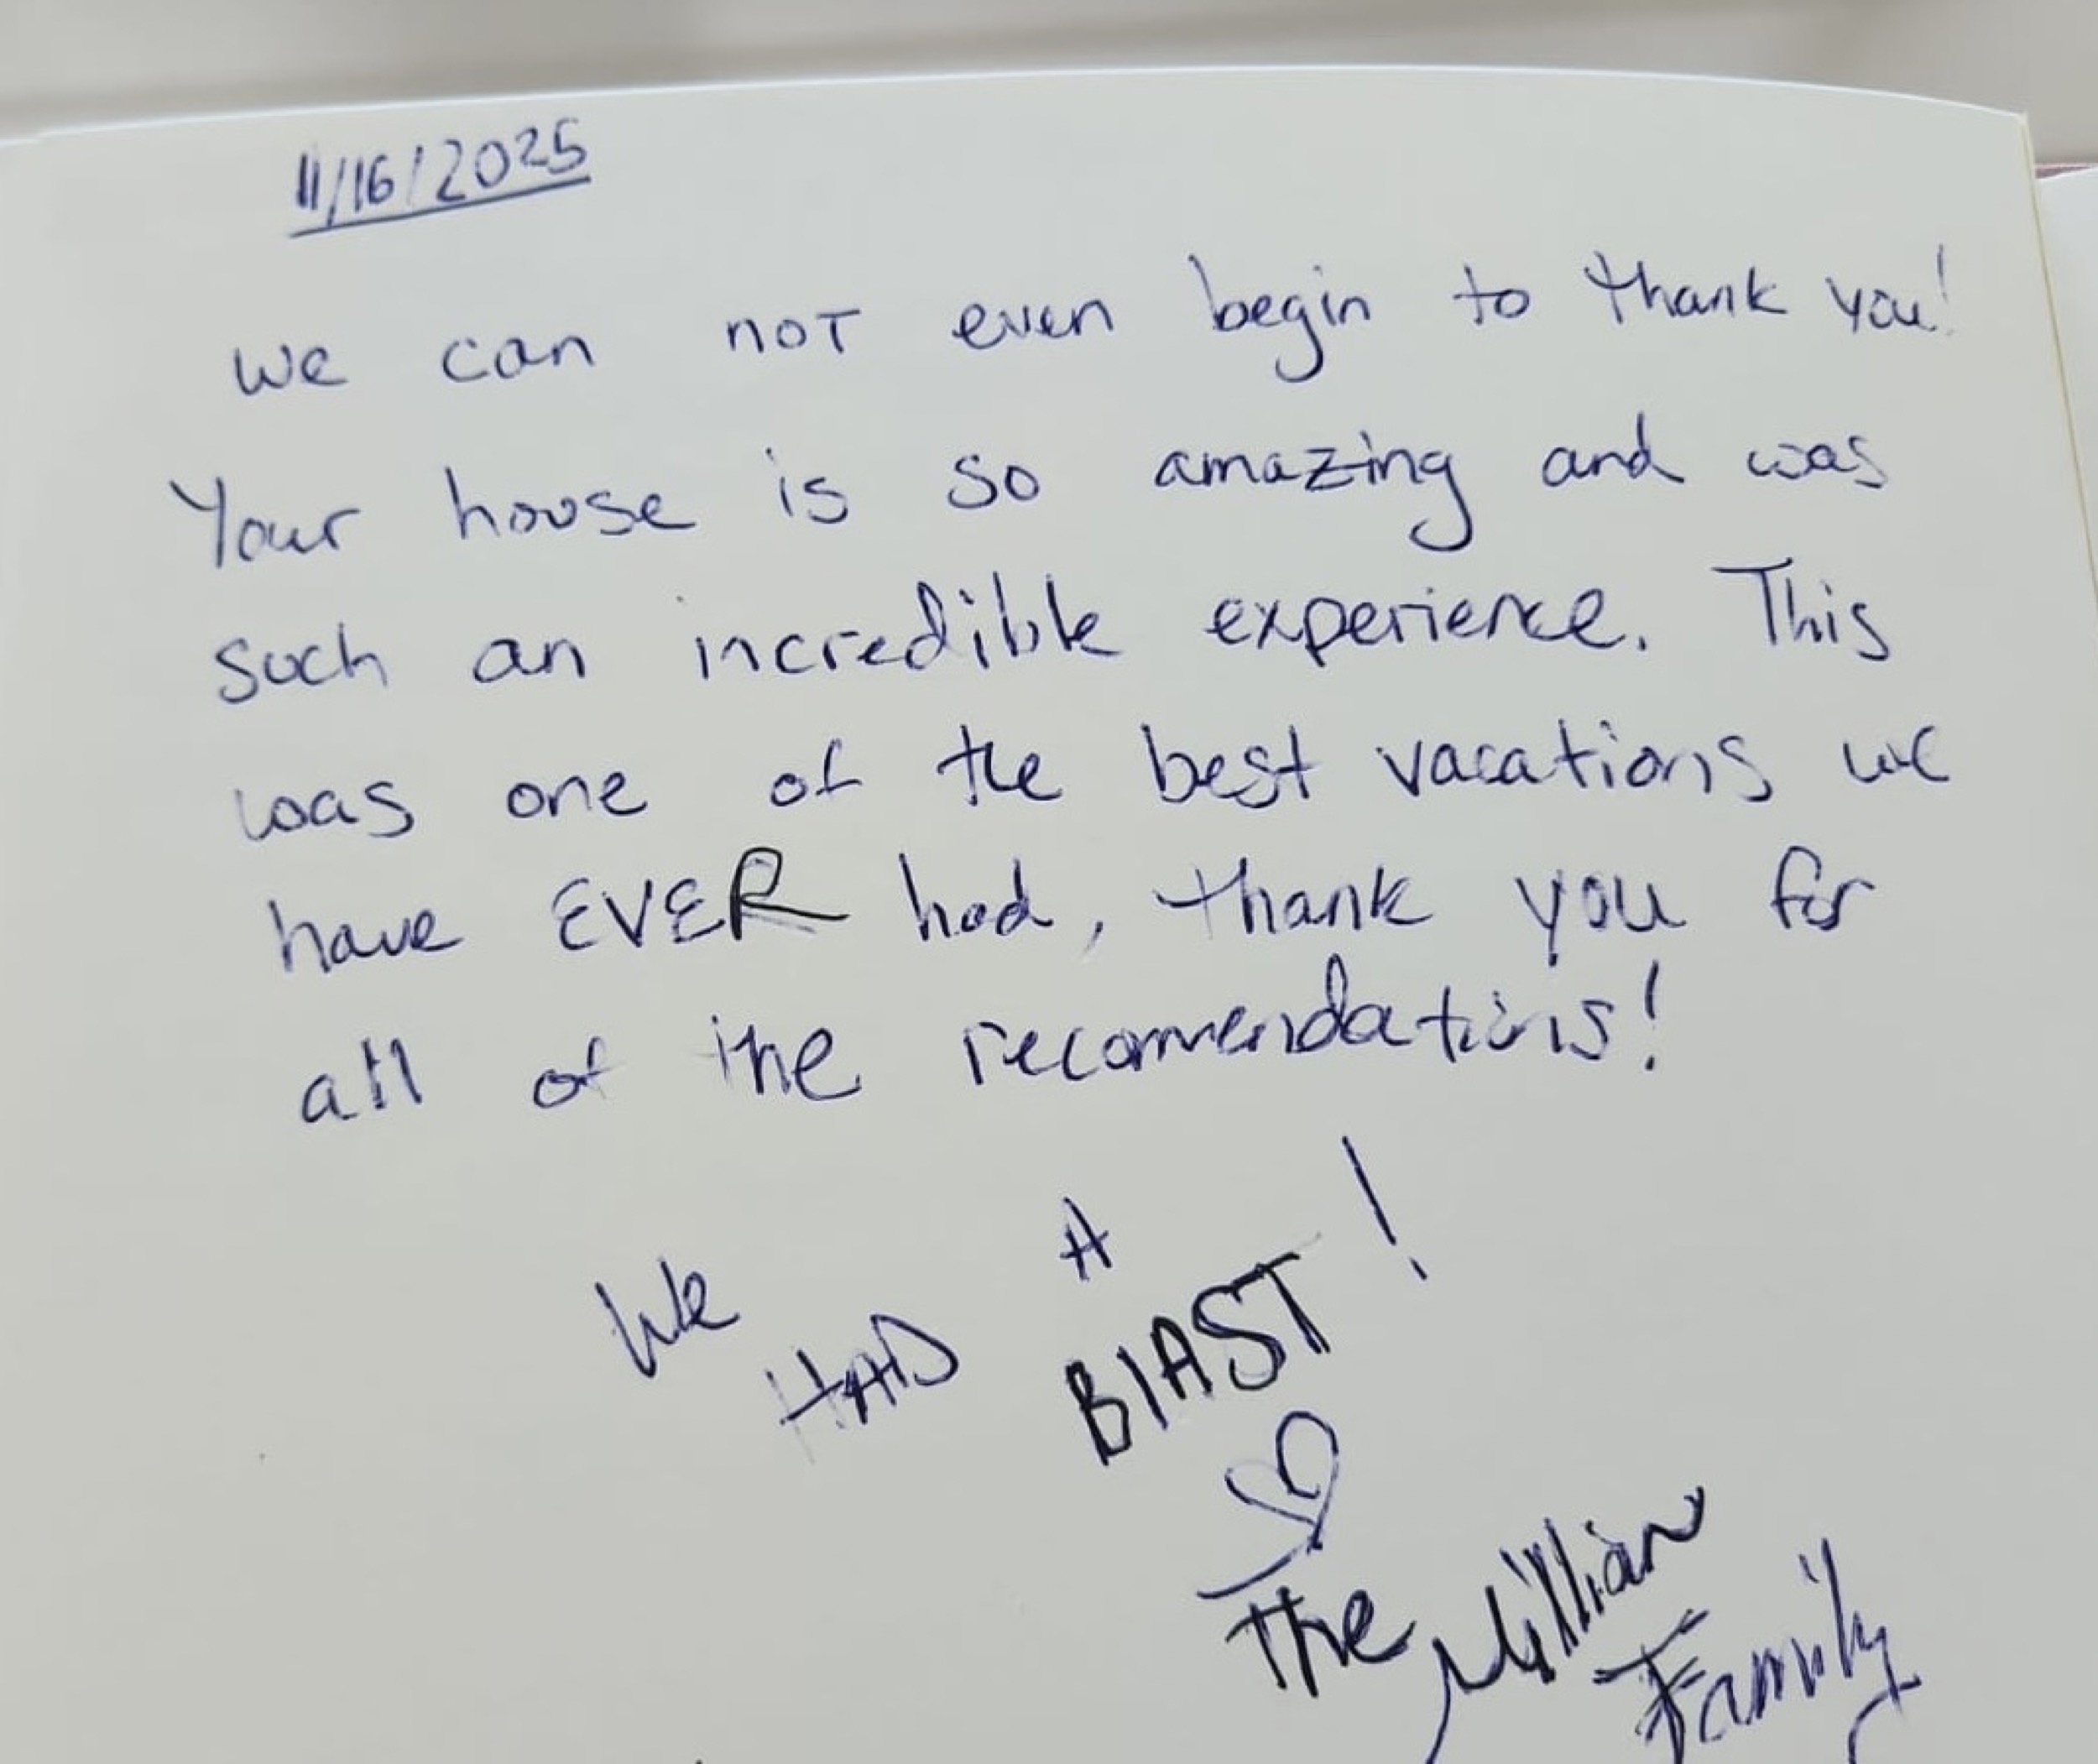 11/16/2025
we can not even begin to thank you!
Your house is so amazing and was
such an incredible experience. This
was one of the best vacations we
have EVER had, thank you for
all of the recomendations!
We HAD A BLAST!
The Millian
Family